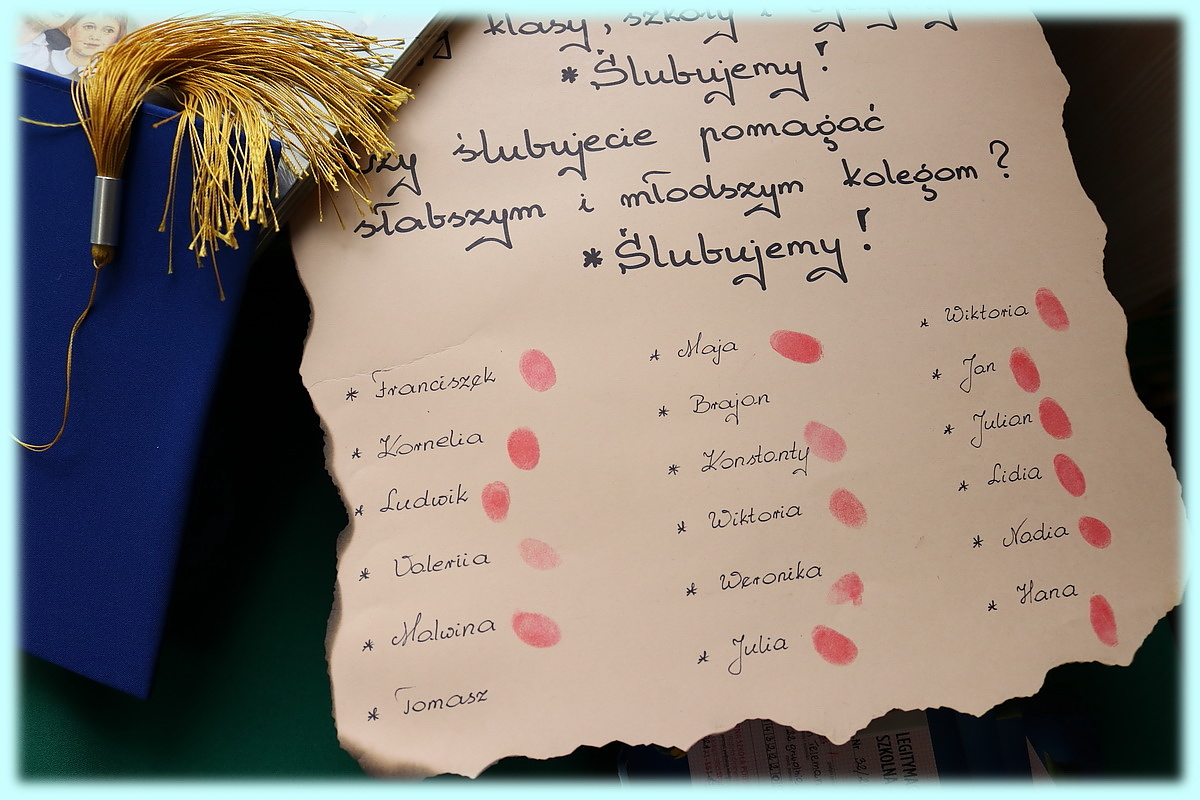 klasy, szkoły i
* Ślubujemy!
czy ślubujecie pomagać
słabszym i młodszym kolegom?
* Ślubujemy!
* Franciszek
* Kornelia
* Ludwik
* Valeriia
* Malwina
* Tomasz
* Maja
* Brajan
* Konstanty
* Wiktoria
* Weronika
* Julia
* Wiktoria
* Jan
* Julian
* Lidia
* Nadia
* Hana
LEGITYMA
SZKOLNA
Nr. 32/